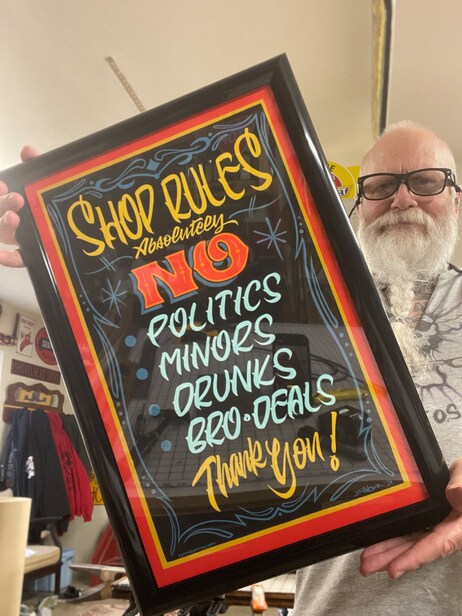 SHOP RULES
Absolutely
NO
POLITICS
MINORS
DRUNKS
BRO•DEALS
Thank You!